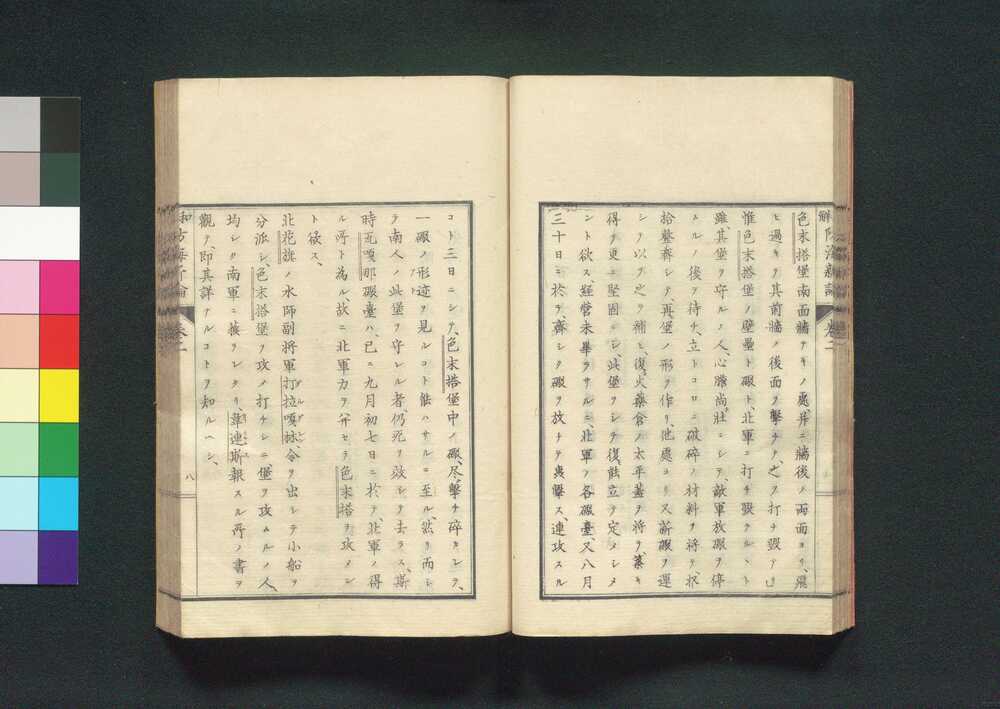 色末搭堡南面牆ヲキノ處、并ニ牆後ノ兩面ヨリ、飛
ヒ過キテ其前牆ノ後面ヲ撃チ、之ヲ打チ毀ア
惟色末搭堡ノ壁壘ト礮ト、北軍ニ打チ毀テル、ト
雖其堡ヲ守ル人、心膽尚壯ニシテ、敵軍放礮ヲ停
ムルノ後ヲ待チ、立トコロニ破碎ノ材料ヲ將テ、収
拾整齊シテ、再堡ノ形ヲ作リ、他處ヨリ又新礮ヲ運
シテ以テ之ヲ補ヒ、復火藥倉ノ太平蓋ヲ將テ、築キ
得テ更ニ堅固ニシ、此堡ヲシテ復能立ヲ定メシメ
ント欲ス、經營未畢ラサルニ、北軍ノ各礮臺、又八月
三十日ニ於テ、齊シク礮ヲ放チテ轟撃ス連攻スル
コト三日ニシテ、色末搭堡中ノ礮、尽撃チ碎カレテ、
一礮ノ形迹ヲ見ルコト能ハサルニ至ル、然リ而シ
テ南人ノ此堡ヲ守レル者、仍死ヲ效シテ去ラス、斯
時瓦嘎那礮臺ハ、已ニ九月初七日ニ於テ、北軍ノ得
ル所ト為ル故ニ北軍力ヲ并セテ色末搭ヲ攻メン
ト欲ス、
北花旗ノ水師副將軍打拉嘎林令ヲ出シテ小船ヲ
分派シ、色末搭堡ヲ攻メ打チシニ、堡ヲ攻ムルノ人、
均シク南軍ニ被ラレタリ、韋連斯報スル所ノ書ヲ
觀テ、即其詳ナルコトヲ知ルヘシ、
八